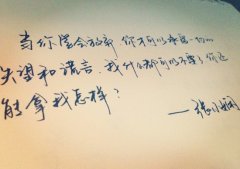 当你学会放弃 你才可以承受一切的
失望和谎言。我什么都可以不要了你还
能拿我怎样？
——张小娴